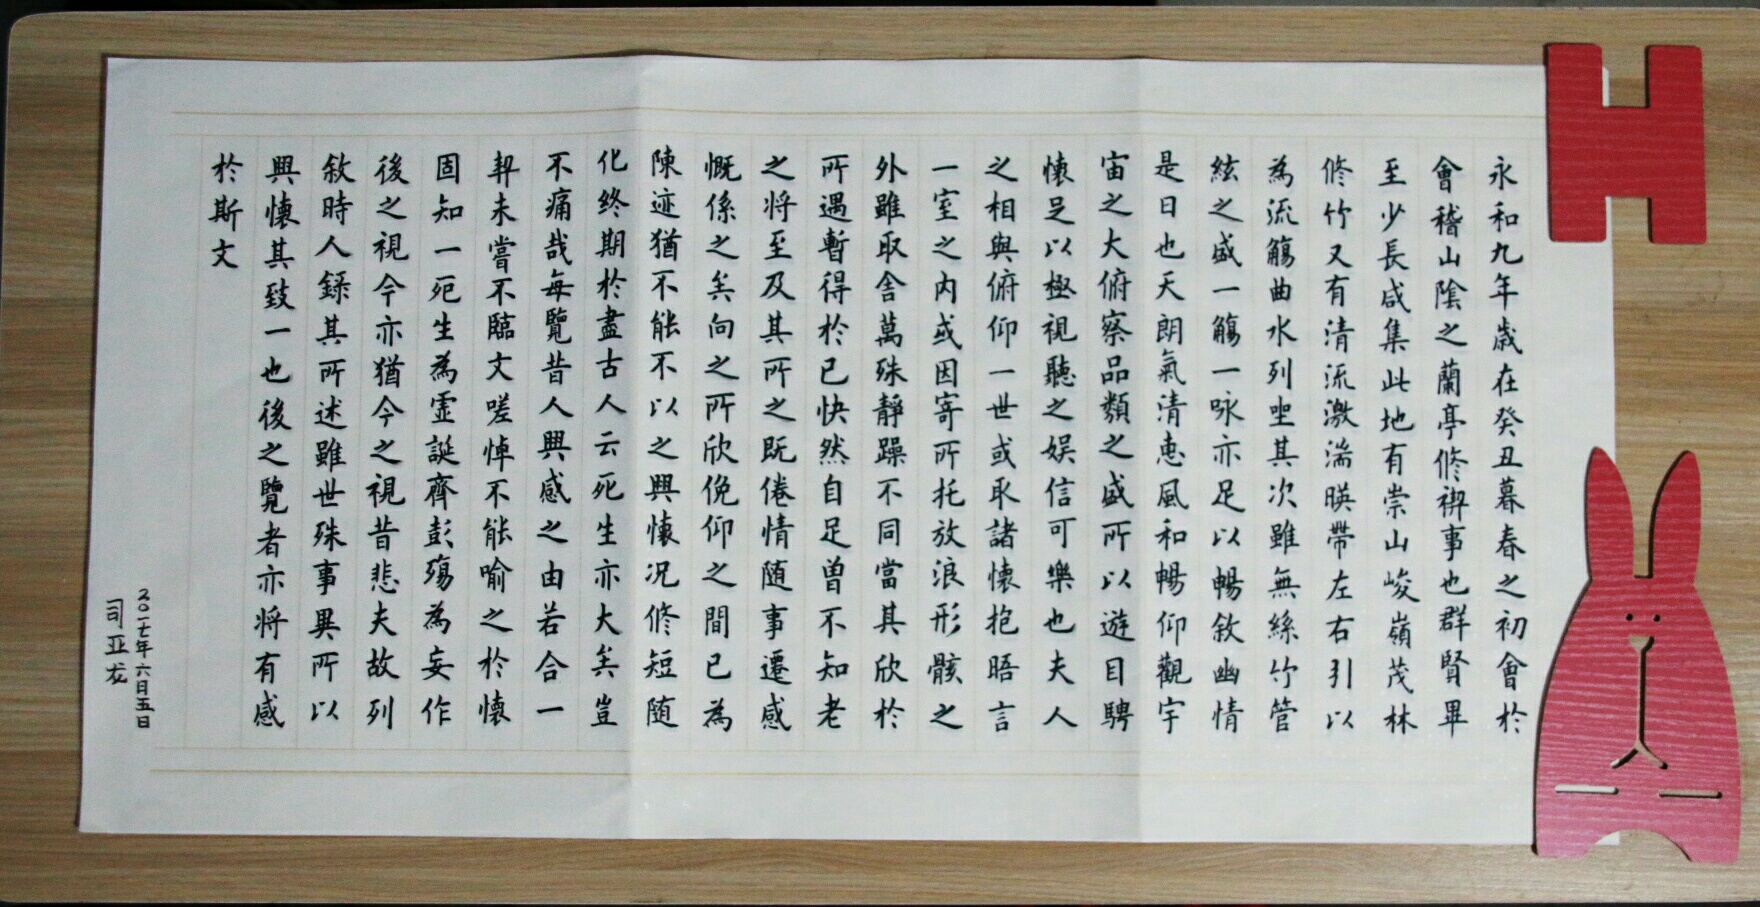 永和九年歲在癸丑暮春之初會於
會稽山陰之蘭亭修禊事也群賢畢
至少長咸集此地有崇山峻嶺茂林
修竹又有清流激湍暎帶左右引以
為流觴曲水列坐其次雖無絲竹管
絃之盛一觴一咏亦足以暢敘幽情
是日也天朗氣清惠風和暢仰觀宇
宙之大俯察品類之盛所以遊目騁
懷足以極視聽之娛信可樂也夫人
之相與俯仰一世或取諸懷抱晤言
一室之內或因寄所托放浪形骸之
外雖取舍萬殊靜躁不同當其欣於
所遇暫得於己快然自足曾不知老
之將至及其所之既倦情随事遷感
慨係之矣向之所欣俛仰之間已為
陳迹猶不能不以之興懷况修短随
化終期於盡古人云死生亦大矣豈
不痛哉每覽昔人興感之由若合一
契未嘗不臨文嗟悼不能喻之於懷
固知一死生為虛誕齊彭殤為妄作
後之視今亦猶今之視昔悲夫故列
敘時人錄其所述雖世殊事異所以
興懷其致一也後之覽者亦將有感
於斯文
二〇一七年六月五日
司亚龙